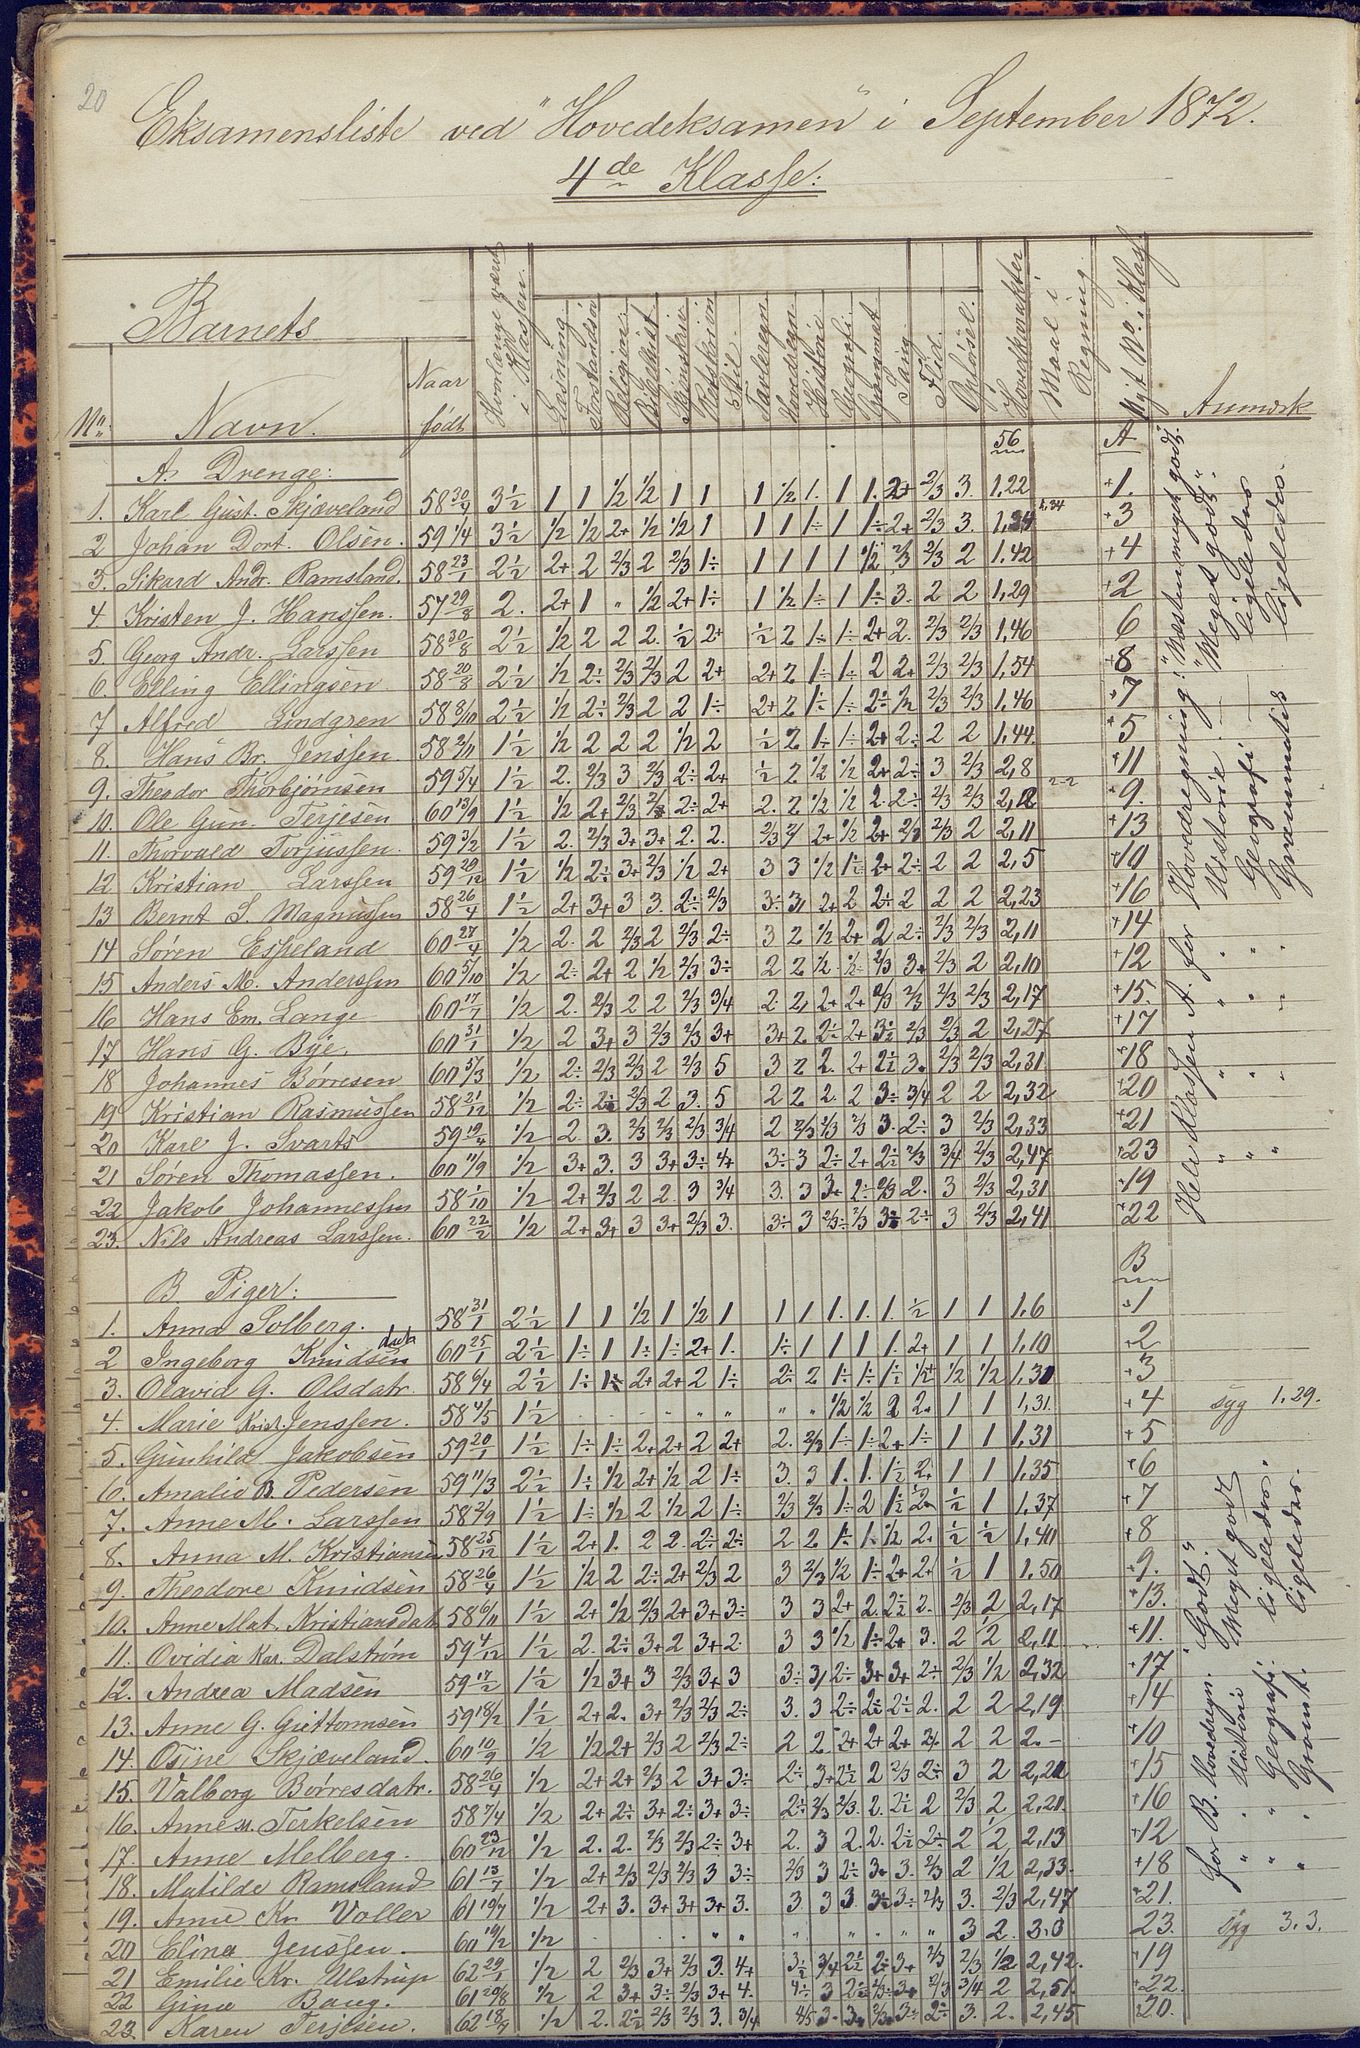 20
Eksamensliste ved "Hovedeksamen" i September 1872.
4de Klasse:
Barnets
No. Navn. Naar født Hvorlænge været i Klassen. Læsning Forstandsöv. Religion Bibelhist. Skjønskriv. Retskrivn Stil Tavleregn. Hovedregn. Historie Geografi Grammat. Sang Flid. Opførsel. Hovedkarakter Maal i Regning. Nyt No. i Klass. Anmærk
A. Drenge: 56 A
1. Karl Gust. Skjæveland 58 30/4 3 1/2 1 1 1/2 1/2 1 1 1 1/2 1. 1 1. 2+ 2/3 3. 1,22 +1.
2 Johan Dort. Olsen. 59 1/4 3 1/2 1/2 1/2 2+ 1/2 1/2 1 1 1 1÷ 1 1÷ 2+ 2/3 3 1,34 1,34 +3
3. Sikard Andr. Ramsland. 58 23/1 2 1/2 2+ 2 2/3 2 2/3 1÷ 1 1 1 1 1/2 2/3 2/3 2 1.42 +4
4 Kristen J. Hanssen. 57 29/8 2. 2+ 1 " 1/2 2+ 1÷ 1 1/2 1÷ 1 1÷ 3. 2 2 1,29 +2
5. Georg Andr. Larssen 58 30/8 2 1/2 1/2 2 2 2. 1/2 2+ 1/2 2 1÷ 1÷ 2+ 2. 2/3 2/3 1,46 6
6. Elling Ellingsen 58 20/8 2 1/2 1/2 2÷ 2/3 2/3 2 2+ 2+ 2 1÷ 1÷ 2 2+ 2/3 2/3 1,54 +8
7 Alfred Lindgren 58 8/10 2 1/2 1/2 2÷ 2/3 2 2 1÷ 2+ 2 1÷ 1÷ 2÷ 1/2 2/3 2/3 1,46 +7
8. Hans Br. Jenssen. 58 2/11 1 1/2 1/2 2 2 2 1/2 2 1/2 2 1÷ 1÷ 2+ 2÷ 2 2 1,44. +5
9. Theodor Thorbjørnsen 59 5/4 1 1/2 2. 2/3 3 2/3 2÷ 2+ 1/2 2 1/2 1/2 2+ 2÷ 3 2/3 2,8 +11
10. Ole Gun. Terjesen 60 13/9 1 1/2 1/2 2+ 2/3 2/3 2÷ 2+ 2. 2 1/2 1/2 2. 2÷ 2/3 2/3 2,12 +9.
11. Thorvald Torjussen. 59 3/2 1 1/2 2. 2/3 3+ 3+ 2. 2. 2/3 2/ 2+ 1/2 2+ 2/3 2/3 2 2,11 +13
12 Kristian Larssen 59 20/12 1 1/2 1/2 2÷ 3+ 2/3 1/2 2+ 3 3 1/2 1÷ 2+ 2÷ 2 2 2,5 +10
13 Bernt S. Magnussen 58 26/4 1 1/2 2+ 3+ 3 3. 2÷ 2/3 3÷ 3/ 2+ 2 2÷ 2 2 2 2,23 +16
14 Søren Espeland 60 27/4 1/2 2. 2 2/3 2 2/3 2÷ 3 2 1/2 2+ 2 2÷ 2/3 2/3 2,11 +14
15 Anders M. Anderssen 60 5/10 1/2 2÷ 2+ 2 1/2 2/3 3÷ 2 2 1/2. 1/2 2/3 3+ 2/3 2 2,10 +12
16 Hans Em. Lange 60 17/7 1/2 2. 2/3 2 2 2/3 3/4 2. 2, 2+ 2+ 2/3 2/3 2/3 2/3 2,17 +15.
17 Hans G. Bye. 60 31/1 1/2 2 3+ 3 2/3 2/3 3+ 3+ 2 2÷ 2+ 3÷ 2/3 2/3 2 2,27 +17
18 Johannes Børresen 60 5/3 1/2 2÷ 2/3 2/3 2 2/3 5 3 2 2. 2+ 2÷ 3. 2/3 2/3 2,31. +18
19 Kristian Rasmussen 58 21/12 1/2 2÷ 2÷ 2/3 2 3. 5 2 2 2. 2 3÷ 3/4 2 2 2,32 +20
20 Karl J. Svarts 59 19/4 1/2 2. 3. 2/3 2/3 2/3 3/4 2 2/3 2/3 2/3 3. 2÷ 3 2/3 2,33 +21
21 Søren Thomassen. 60 11/9 1/2 3+ 3. 3 3+ 3÷ 4+ 3÷ 3 2÷ 2+ 2÷ 2/3 3/4 2/3 2,47 +23
22 Jakob Johannessen 58 1/10 1/2 2+ 2/3 2 2. 3 3/4 3. 3 3+ 2÷ 2/3 2. 3 2/3 2,31 +19
23. Nils Andreas Larssen. 60 22/2 1/2 2+ 3+ 3 3+ 2/3 3. 3÷ 3 2/3÷ 2/3 3÷ 2÷ 3 2/3 2,41 +22
Hele Klassen A. for Hovedregning: "Næsten meget godt".
" " Historie — "Meget godt".
" " Geografi — ligeledes
" " Grammatik ligeledes.
B Piger: B
1. Anna Solberg. 58 31/1 2 1/2 1 1 1/2 1 1/2 1 1 1 1. 1. 1. 1/2 1 1 1,6 1
2 Ingeborg Knudsen datr 60 25/1 2 1/2 1÷ 1 1÷ 1÷ 2+ 1. 1÷ 1 1 1 1. 2+ 1 1 1,10 +2
3. Olavid G. Olsdatr. 58 6/4 2 1/2 1÷ 1÷ 2+ 2+ 2 1÷ 2÷ 2 1÷ 1÷ 1÷ 1/2+ 1/2 1/2 1,30 +3
4. Marie Krist. Jenssen. 58 4/5 1 1/2 . . . . " " " " 1/2 1/2 2 2. 1 1 1,31. +4 syg 1,29.
5. Gunhild Jakobsen 59 20/1 1 1/2 1÷ 1÷ 2+ 2+ 2 2+ 2. 2/3 1÷ 1÷ 2+ 1÷ 1 1 1,31 +5
6. Amalie B. Pedersen 59 11/3 2 1/2 1÷ 1/2 2+ 1/2 2 1÷ 3. 3 1. 1. 1÷ 2+ 1 1 1,35. +6
7. Anne M. Larssen 58 2/9 1 1/2 1÷ 1/2 2 1/2 2 1÷ 2/3 2/3 1÷ 2 1÷ 2. 1/2 1 1,37 +7
8. Anna M. Kristiansen 58 25/12 1 1/2 2+ 1. 2 2. 2÷ 2÷ 2 2 1÷ 1÷ 1/2 2. 1/2 1/2 1,40 +8
9. Theodore Knudsen 58 26/4 1 1/2 1/2 2 2÷ 2+ 2/3 2 3 2/3 1/2 1÷ 2+ 2+ 1/2 1 1,50 +9.
10. Anne Mat. Kristiansdatr 58 6/11 1 1/2 2+ 1/2 2/3 2+ 3+ 3÷ 3 3 2+ 2. 2÷ 2. 2/3 2 2,17 +13.
11. Ovidia Kar. Dalstrøm 59 4/12 1 1/2 2. 2÷ 3+ 2 3+ 2. 3 3 1/2 1÷ 2+ 3. 2 2 2,11 +11.
12. Andrea Madsen 59 17/2 1 1/2 1/2 3+ 3 2/3 3+ 3 3÷ 3/ 2÷ 3+ 3+ 2÷ 2/3 1/2 2,32 +17
13. Anne G. Guttormsen 59 18/2 1 1/2 2+ 2. 3+ 2/3 2/3 2÷ 3. 3 2÷ 2÷ 2÷ 2. 2 2 2,19 +14
14. Osine Skjæveland. 60 10/9 1/2 1/2 2+ 2/3 2 2/3 2÷ 2 2. 2+ 2+ 2+ 2/. 2 2 2.— +10
15. Valborg Børresdatr. 58 26/4 1/2 2+ 2+ 2/3 2 3+ 3÷ 2÷ 3+ 2÷ 2 2/3 2÷ 3 2 2,20 +15
16. Anne M. Terkelsen 58 7/4 1/2 2+ 2÷ 3+ 2÷ 3+ 3÷ 2÷ 2/3 2/3. 2. 2÷ 2 2/3 2 2,21. +16
17. Anne Melberg. 60 23/12 1/2 2. 2. 2/3 2/3 2÷ 3+ 2. 3 2. 2. 2÷ 2÷ 2 2 2,13 +12
18. Matilde Ramsland 61 13/7 1/2 2+ 2/3 2/3 2/3 3 3÷ 2/3 3 2÷ 3. 3. 2/3 2 1/2 2,33. +18
19. Anne Kr Voller 61 19/7 1/2 2+ 3. 3+ 3+ 3+ 3. 3 3 3 3÷ 3÷ 2/3 3. 2/3 2,47 21.
20 Elina Jenssen. 60 19/2 1/2 . . . . " " " " " " " " 3 2. 3.0 23. syg 3.3.
21 Emilie Kr. Ulstrup 62 29/1 1/2 2 2/3 3+ 2/3 3. 4+ 3÷ 3/4 2÷ 2÷ 3+ 2/3 2/3 1/2 2,42. +19
22 Gina Baug. 61 20/8 1/2 2 3+ 3÷ 2/3 3+ 4. 4÷ 3 2÷ 2/3 3+ 2/3 3/4 2 2,51. +22.
23. Karen Terjesen. 62 18/9 1/2 2. 2÷ 2/3 2/3 3. 3/4 4/5 3. 3. 2/3 3÷ 2÷ 3. 2. 2,45 20.
for B. Hovedregn. "Godt".
" " Historie Meget godt
" " Geografi. ligeledes.
" " Gramt. ligeledes.